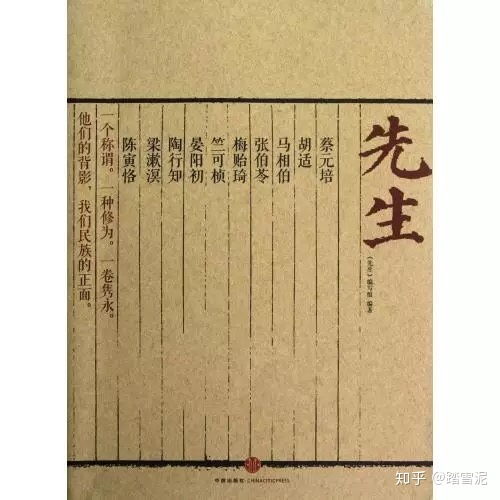 先生
《先生》编写组 编著
蔡元培
胡适
马相伯
张伯苓
梅贻琦
竺可桢
晏阳初
陶行知
梁漱溟
陈寅恪
一个称谓。一种修为。一卷隽永。
他们的背影，我们民族的正面。
中信出版社·CHINACITICPRESS
知乎 @踏雪泥